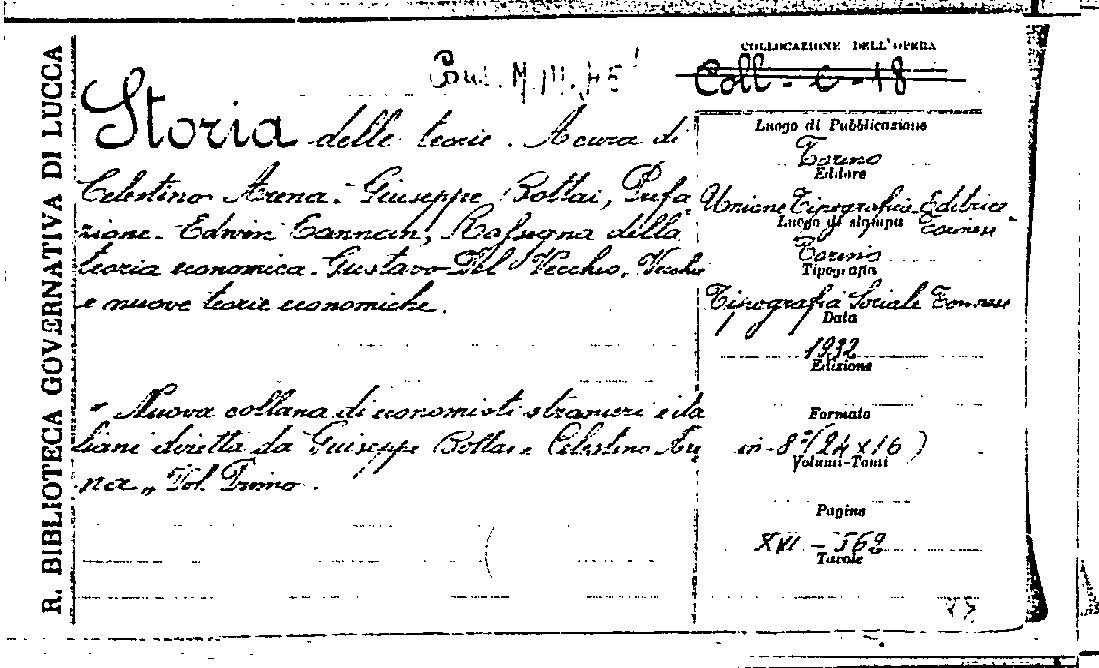 R. BIBLIOTECA GOVERNATIVA DI LUCCA
COLLOCAZIONE DELL'OPERA
Coll - C - 18
Storia delle teorie. A cura di
Celestino Arena - Giuseppe Bottai, Prefa
zione. Edwin Cannan, Rassegna della
teoria economica. Gustavo Del Vecchio, Vecchie
e nuove teorie economiche.
"Nuova collana di economisti stranieri e ita
liani diretta da Giuseppe Bottai e Celestino Are
na" Vol. Primo.
Luogo di Pubblicazione
Torino
Editore
Unione Tipografico Editrice
Torinese
Luogo di stampa
Torino
Tipografia
Tipografia Sociale Torinese
Data
1932
Edizione
Formato
in-8° (24 x 16)
Volumi-Tomi
Pagine
XVI - 569
Tavole